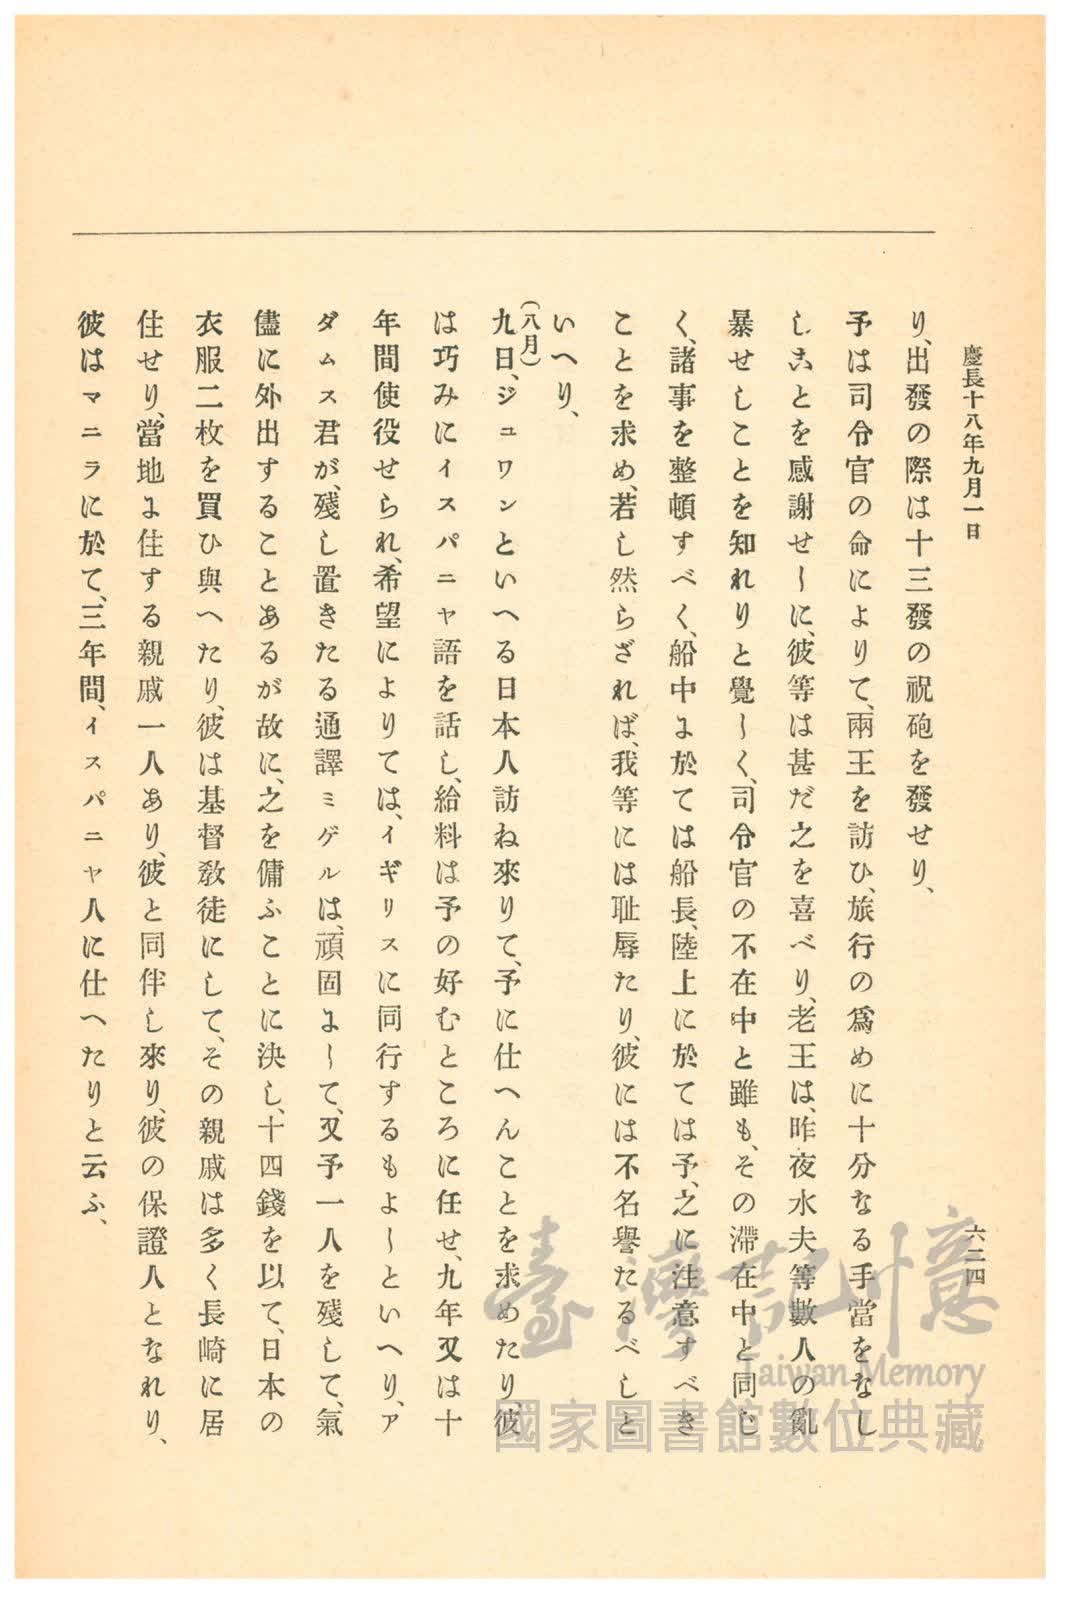 慶長十八年九月一日
六二四
り、出發の際は十三發の祝砲を發せり、
予は司令官の命によりて、兩王を訪ひ、旅行の爲めに十分なる手當をなし
しことを感謝せしに、彼等は甚だ之を喜べり、老王は、昨夜水夫等數人の亂
暴せしことを知れりと覺しく、司令官の不在中と雖も、その滯在中と同じ
く、諸事を整頓すべく、船中に於ては船長、陸上に於ては予、之に注意すべき
ことを求め、若し然らざれば、我等には耻辱たり、彼には不名譽たるべしと
いへり、
(八月)
九日、ジュワンといへる日本人訪ね來りて、予に仕へんことを求めたり、彼
は巧みにイスパニヤ語を話し、給料は予の好むところに任せ、九年又は十
年間使役せられ、希望によりては、イギリスに同行するもよしといへり、ア
ダムス君が、殘し置きたる通譯ミゲルは、頑固にして、又予一人を殘して、氣
儘に外出することあるが故に、之を傭ふことに決し、十四錢を以て、日本の
衣服二枚を買ひ與へたり、彼は基督敎徒にして、その親戚は多く長崎に居
住せり、當地に住する親戚一人あり、彼と同伴し來り、彼の保證人となれり、
彼はマニラに於て、三年間、イスパニヤ人に仕へたりと云ふ、
臺灣記憶
Taiwan Memory
國家圖書館數位典藏